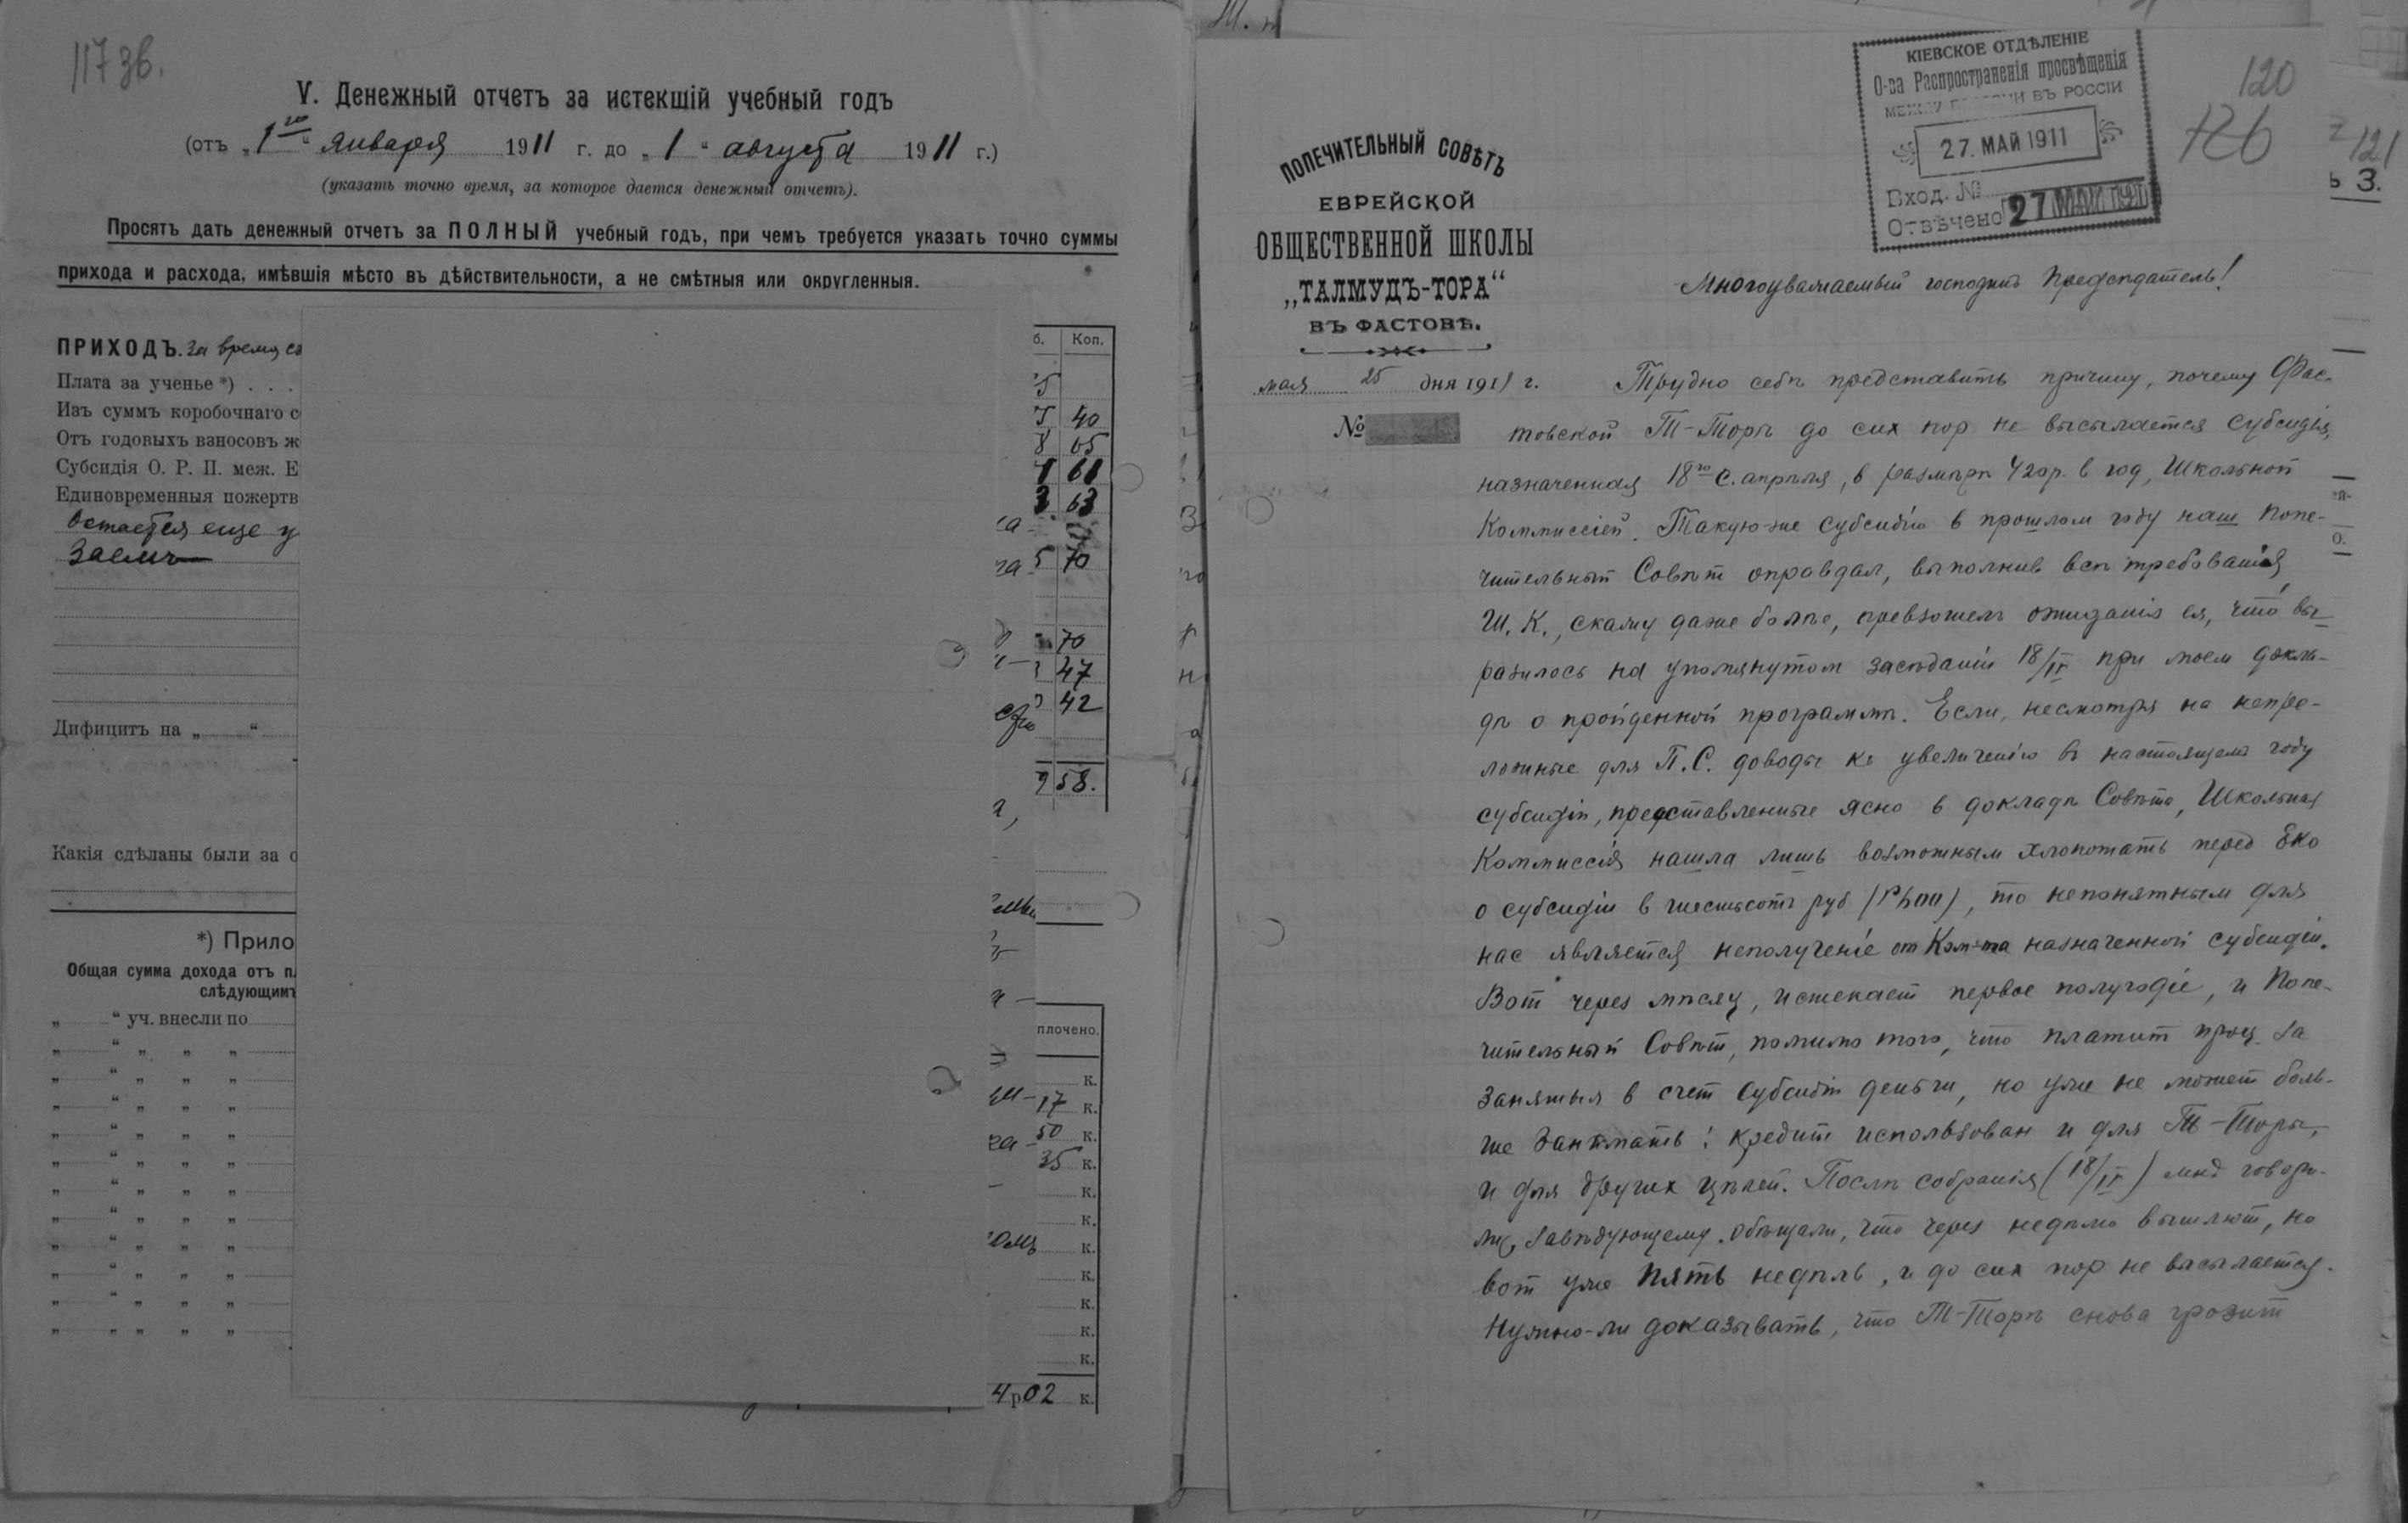 117 зв.
V. Денежный отчетъ за истекшій учебный годъ
(отъ „1го“ января 1911 г. до „1“ августа 1911 г.)
(указать точно время, за которое дается денежный отчетъ).
Просятъ дать денежный отчетъ за ПОЛНЫЙ учебный годъ, при чемъ требуется указать точно суммы
прихода и расхода, имѣвшія мѣсто въ дѣйствительности, а не смѣтныя или округленныя.
ПРИХОДЪ. За время
б. Коп.
Плата за ученье *) . . .
Изъ суммъ коробочнаго с
40
Отъ годовыхъ взносовъ ж
8 05
Субсидія О. Р. П. меж. Е
61
Единовременныя пожертв
3 63
остается еще у
Заемъ
5 70
70
47
42
Дифицитъ на „ “
9 58.
Какія сдѣланы были за о
*) Прило
Общая сумма дохода отъ пл
слѣдующимъ
плочено.
„ “ уч. внесли по
„ “ „ „ „ к.
„ “ „ „ „ 17 к.
„ “ „ „ „ 50 к.
„ “ „ „ „ 35 к.
„ “ „ „ „ к.
„ “ „ „ „ к.
„ “ „ „ „ к.
„ “ „ „ „ к.
„ “ „ „ „ к.
„ “ „ „ „ к.
„ „ „ „ „ к.
4 р 02 к.
КІЕВСКОЕ ОТДѢЛЕНІЕ
О-ва Распространенія просвѣщенія
МЕЖДУ ЕВРЕЯМИ ВЪ РОССІИ
27. МАЙ 1911
Вход. №
Отвѣчено 27 МАЙ 1911
120
126
121
3.
ПОПЕЧИТЕЛЬНЫЙ СОВѢТЪ
ЕВРЕЙСКОЙ
ОБЩЕСТВЕННОЙ ШКОЛЫ
„ТАЛМУДЪ-ТОРА“
ВЪ ФАСТОВѢ.
мая 25 дня 1911 г.
№
Многоуважаемый господинъ Предсѣдатель!
Трудно себѣ представить причину, почему Фас-
товской Т-Торѣ до сих пор не высылается субсидія,
назначенная 18го с. апрѣля, в размѣрѣ 420р. в год, Школьной
Коммиссіей. Такую-же субсидію в прошлом году наш Попе-
чительный Совѣт оправдал, выполнив всѣ требованія
Ш. К., скажу даже болѣе, превзошелъ ожиданія ея, что вы-
разилось на упомянутом засѣданіи 18/IV при моем докла-
дѣ о пройденной программѣ. Если, несмотря на непре-
ложные для П. С. доводы къ увеличенію въ настоящемъ году
субсидіи, представленные ясно в докладѣ Совѣта, Школьная
Коммиссія нашла лишь возможным хлопотать перед Еко
о субсидіи в шестьсотъ руб, то непонятным для
нас является неполученіе от Ком-та назначенной субсидіи.
Вот через мѣсяц, истекает первое полугодіе, и Попе-
чительный Совѣт, помимо того, что платит проц. за
занятыя в счет субсидіи деньги, но уже не может боль-
ше занимать: кредит использован и для Т-Торы,
и для других цѣлей. Послѣ собранія (18/IV) мнѣ говори-
ли, завѣдующему обѣщали, что через недѣлю вышлют, но
вот уже пять недѣль, и до сих пор не высылается.
Нужно-ли доказывать, что Т-Торѣ снова грозит